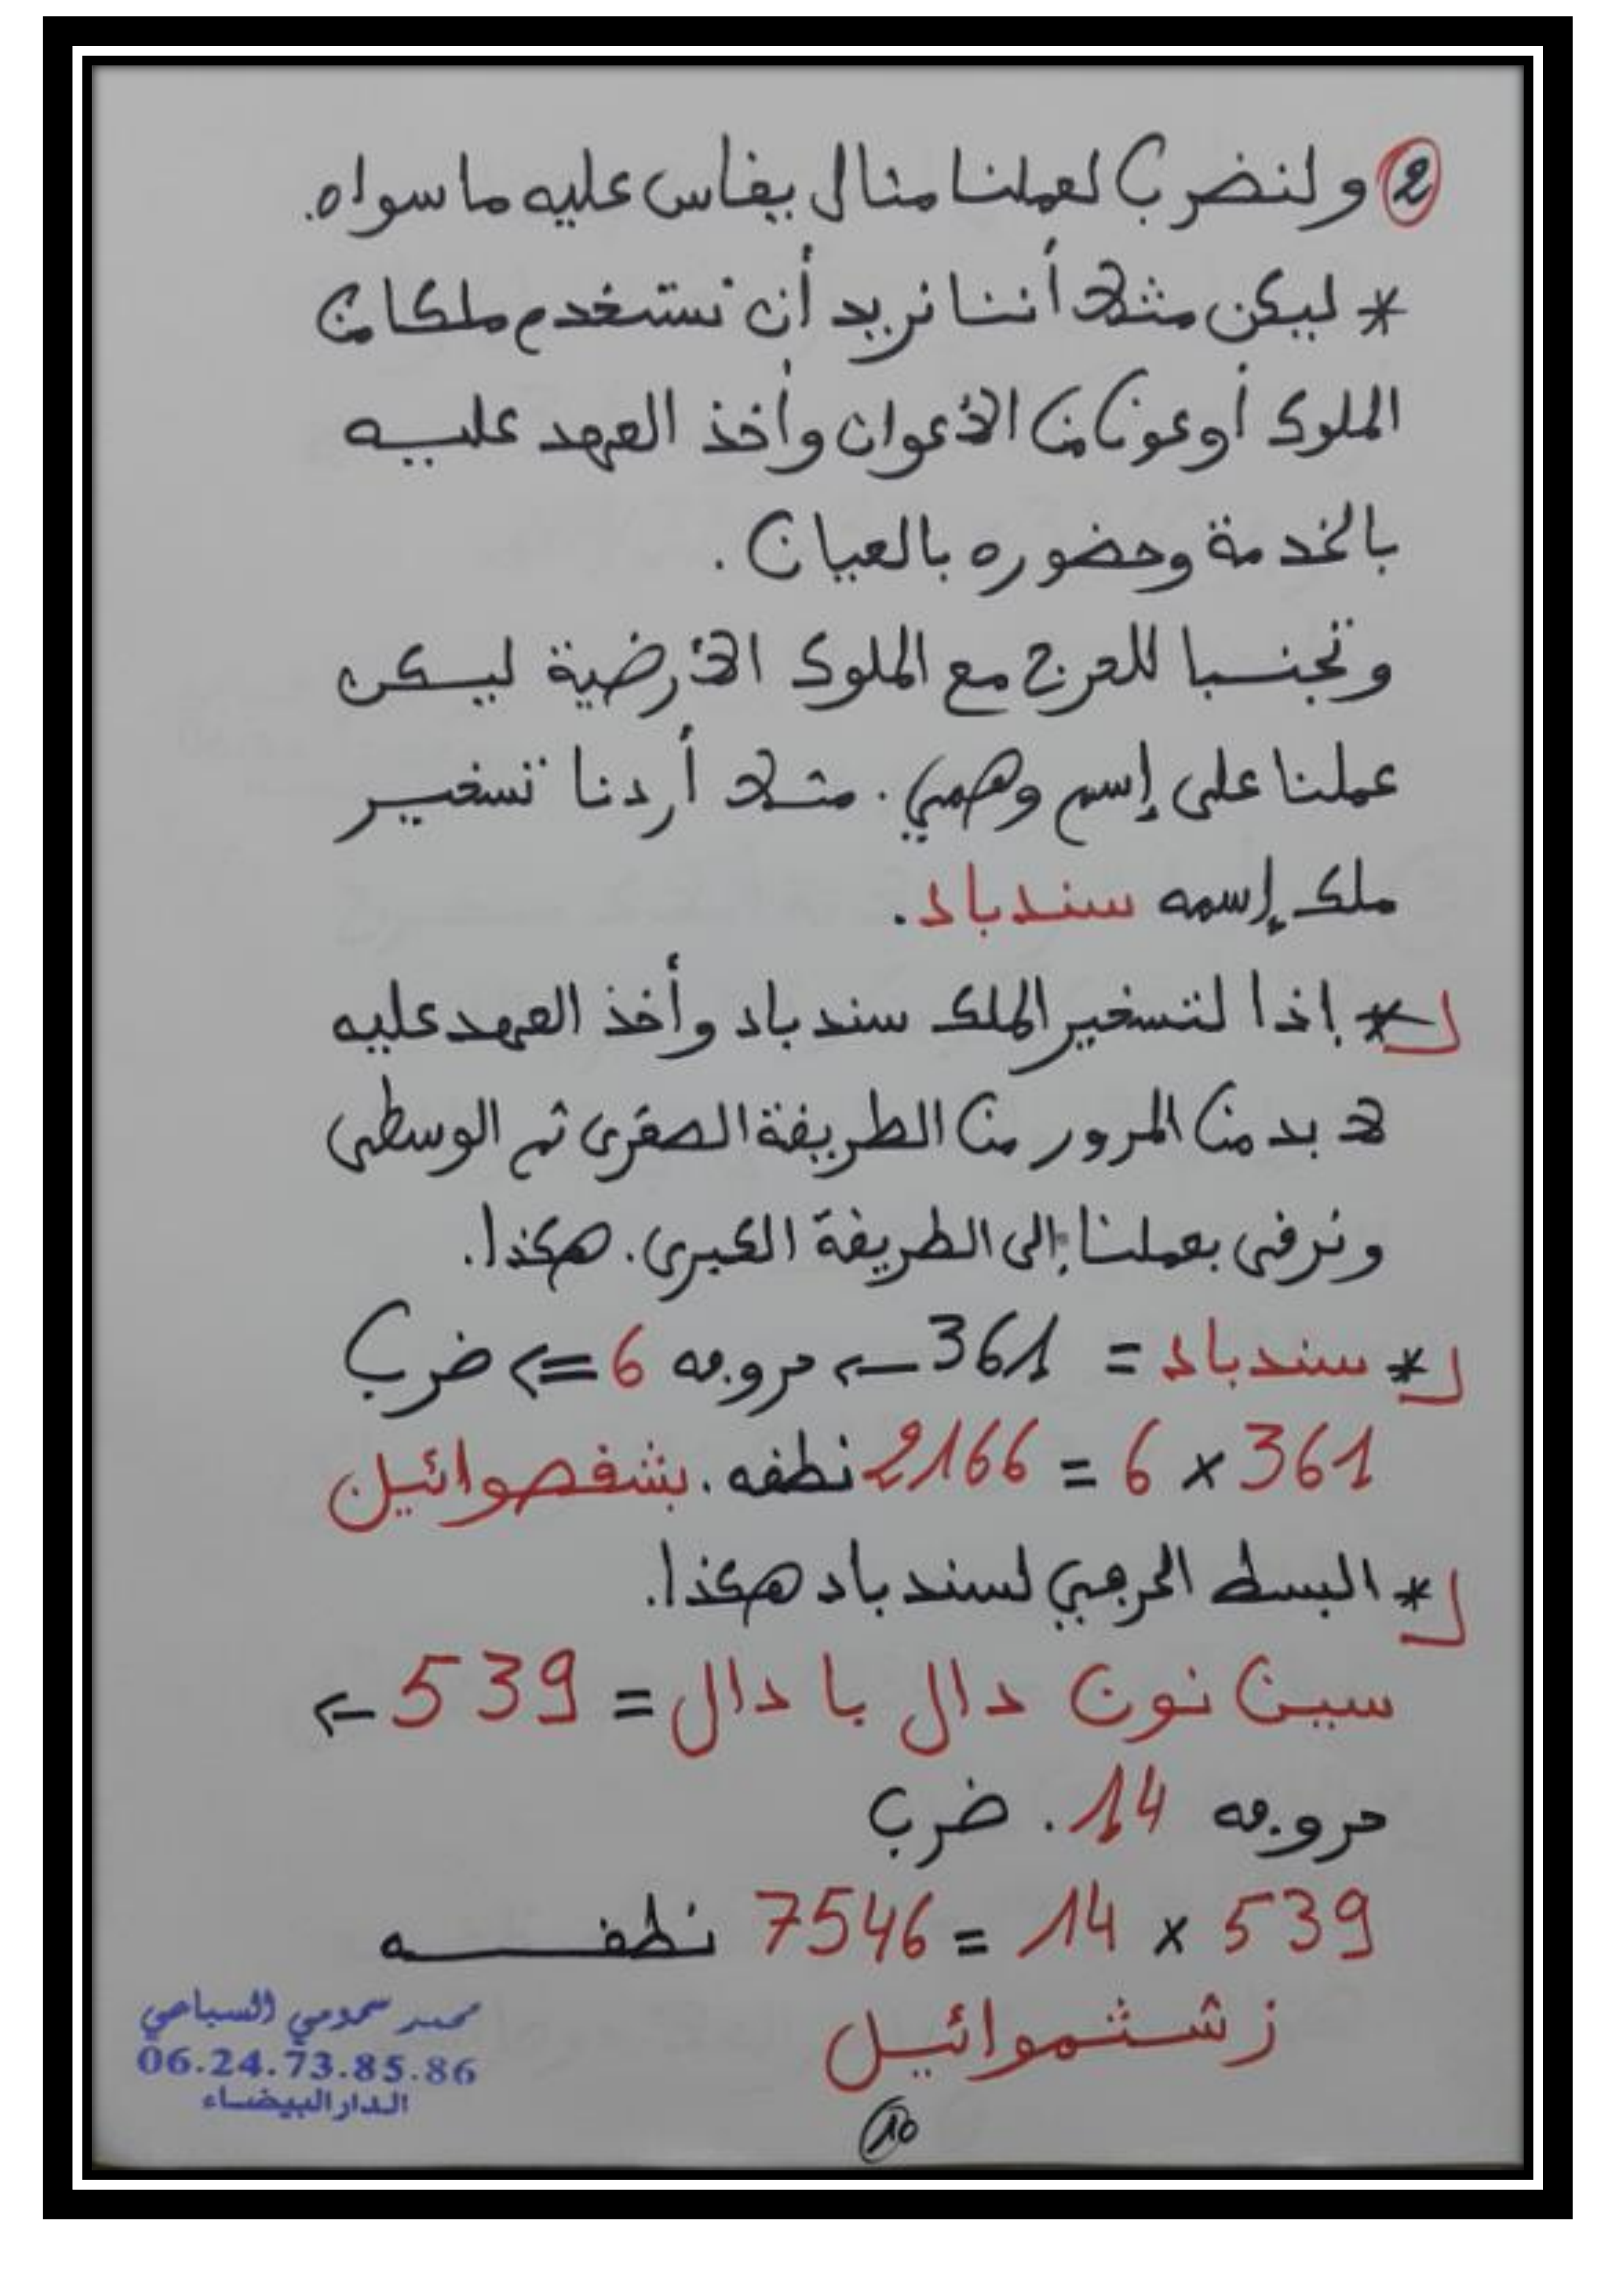 2 ولنضرب لعملنا مثال يقاس عليه ما سواه.
* ليكن مثلا أننا نريد أن نستخدم ملكا من
الملوك أو عونا من الأعوان وأخذ العهد عليه
بالخدمة وحضوره بالعيان.
وتجنبا للحرج مع الملوك الأرضية ليكن
عملنا على إسم وهمي. مثلا أردنا تسخير
ملك إسمه سندباد.
* إذا لتسخير الملك سندباد وأخذ العهد عليه
لا بد من المرور من الطريقة الصغرى ثم الوسطى
ونرقى بعملنا إلى الطريقة الكبرى. هكذا.
* سندباد = 361 ← حروفه 6 ⇐ ضرب
361 × 6 = 2166 نطقه. بشقصوائيل
* البسط الحرفي لسندباد هكذا.
سين نون دال با دال = 539 ←
حروفه 14. ضرب
539 × 14 = 7546 نطقه
زشثموائيل
محمد سحمومي السباعي
06.24.73.85.86
الدار البيضاء
10